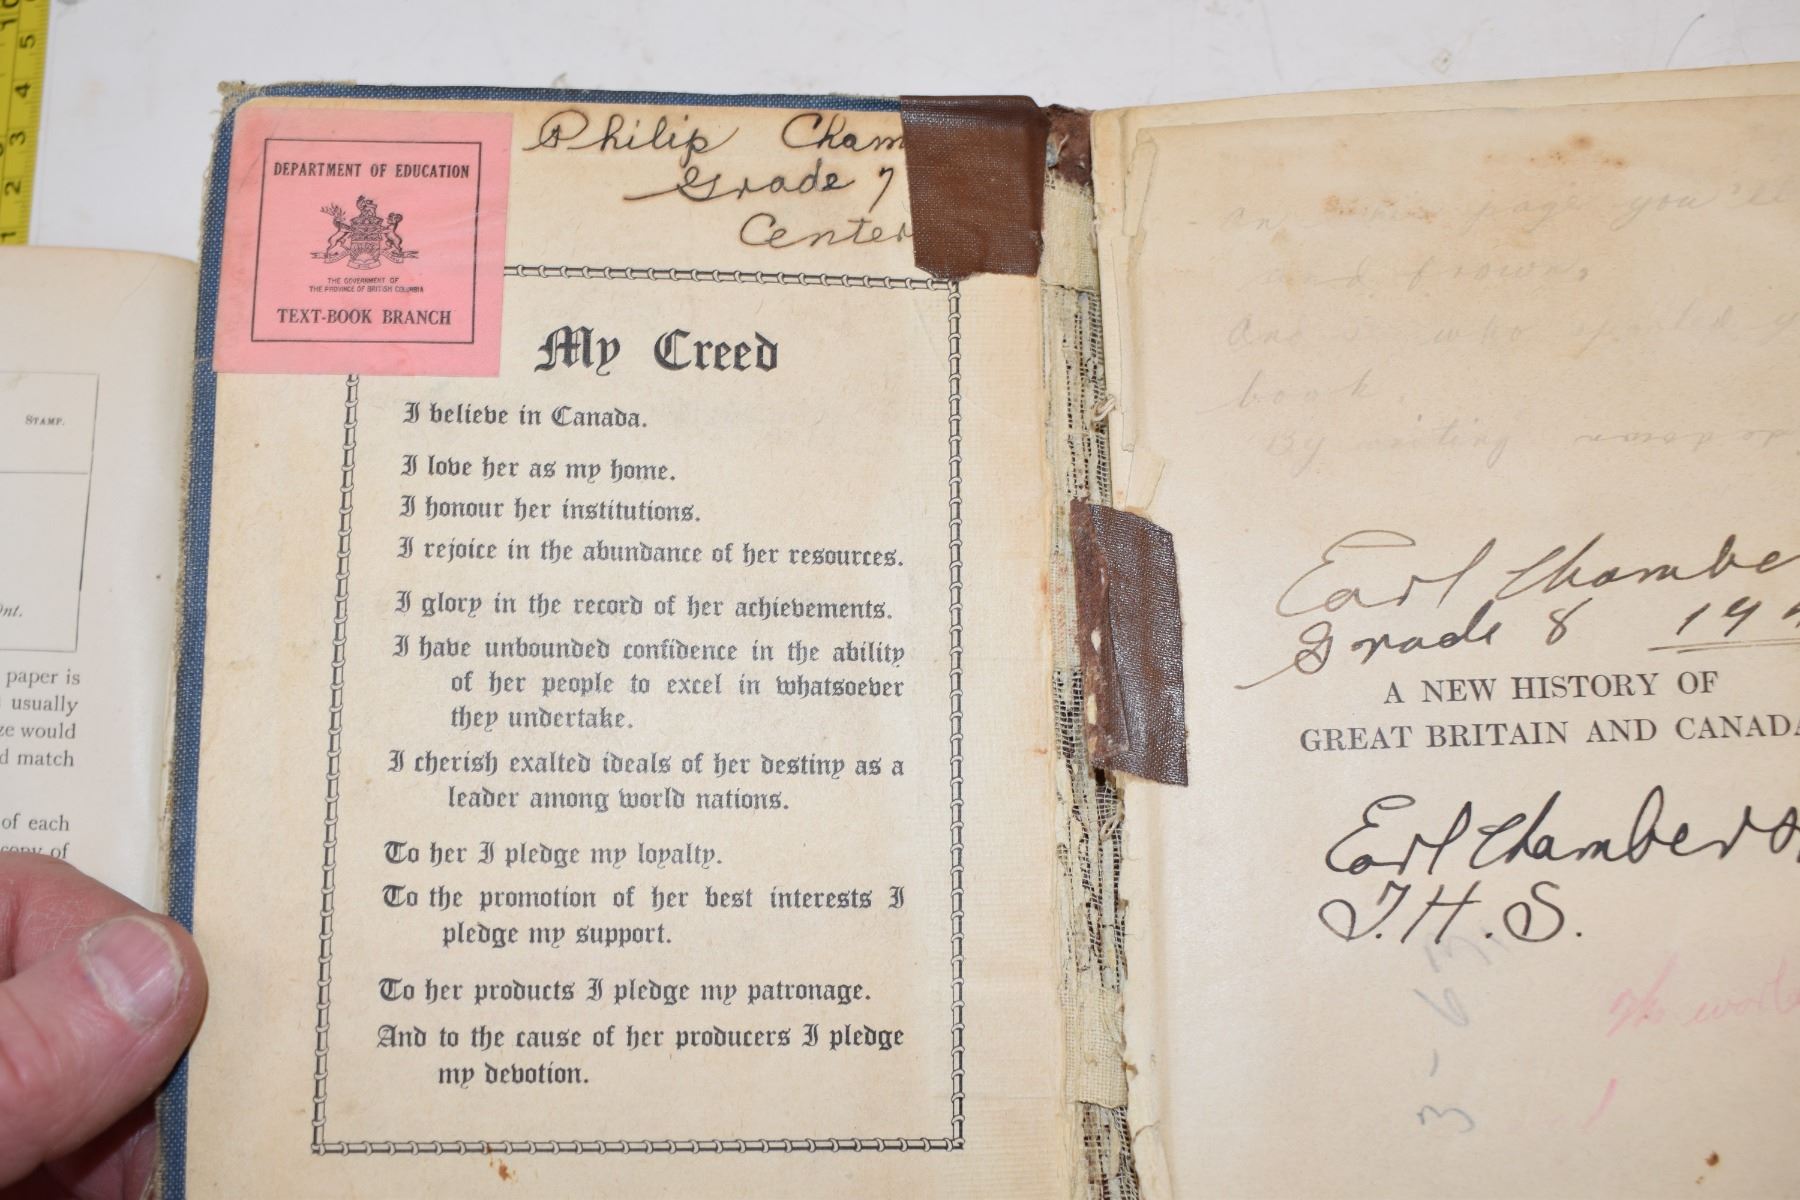 10
5
4
3
2
1
STAMP.
Ont.
paper is
usually
ze would
d match
of each
copy of
DEPARTMENT OF EDUCATION
THE GOVERNMENT OF
THE PROVINCE OF BRITISH COLUMBIA
TEXT-BOOK BRANCH
Philip Cham
Grade 7
Center
My Creed
I believe in Canada.
I love her as my home.
I honour her institutions.
I rejoice in the abundance of her resources.
I glory in the record of her achievements.
I have unbounded confidence in the ability
of her people to excel in whatsoever
they undertake.
I cherish exalted ideals of her destiny as a
leader among world nations.
To her I pledge my loyalty.
To the promotion of her best interests I
pledge my support.
To her products I pledge my patronage.
And to the cause of her producers I pledge
my devotion.
page you'll
and frown,
And who
book.
By writing
Earl Chambe
Grade 8 19
A NEW HISTORY OF
GREAT BRITAIN AND CANADA
Earl Chambers
J.H.S.